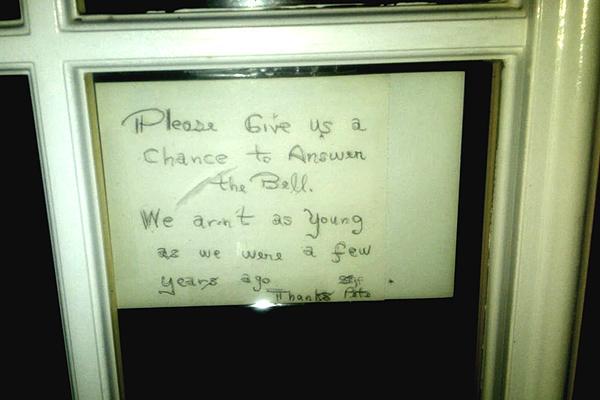 Please Give us a
Chance to Answer
the Bell.
We arn't as Young
as we were a few
years ago
Thanks Pete